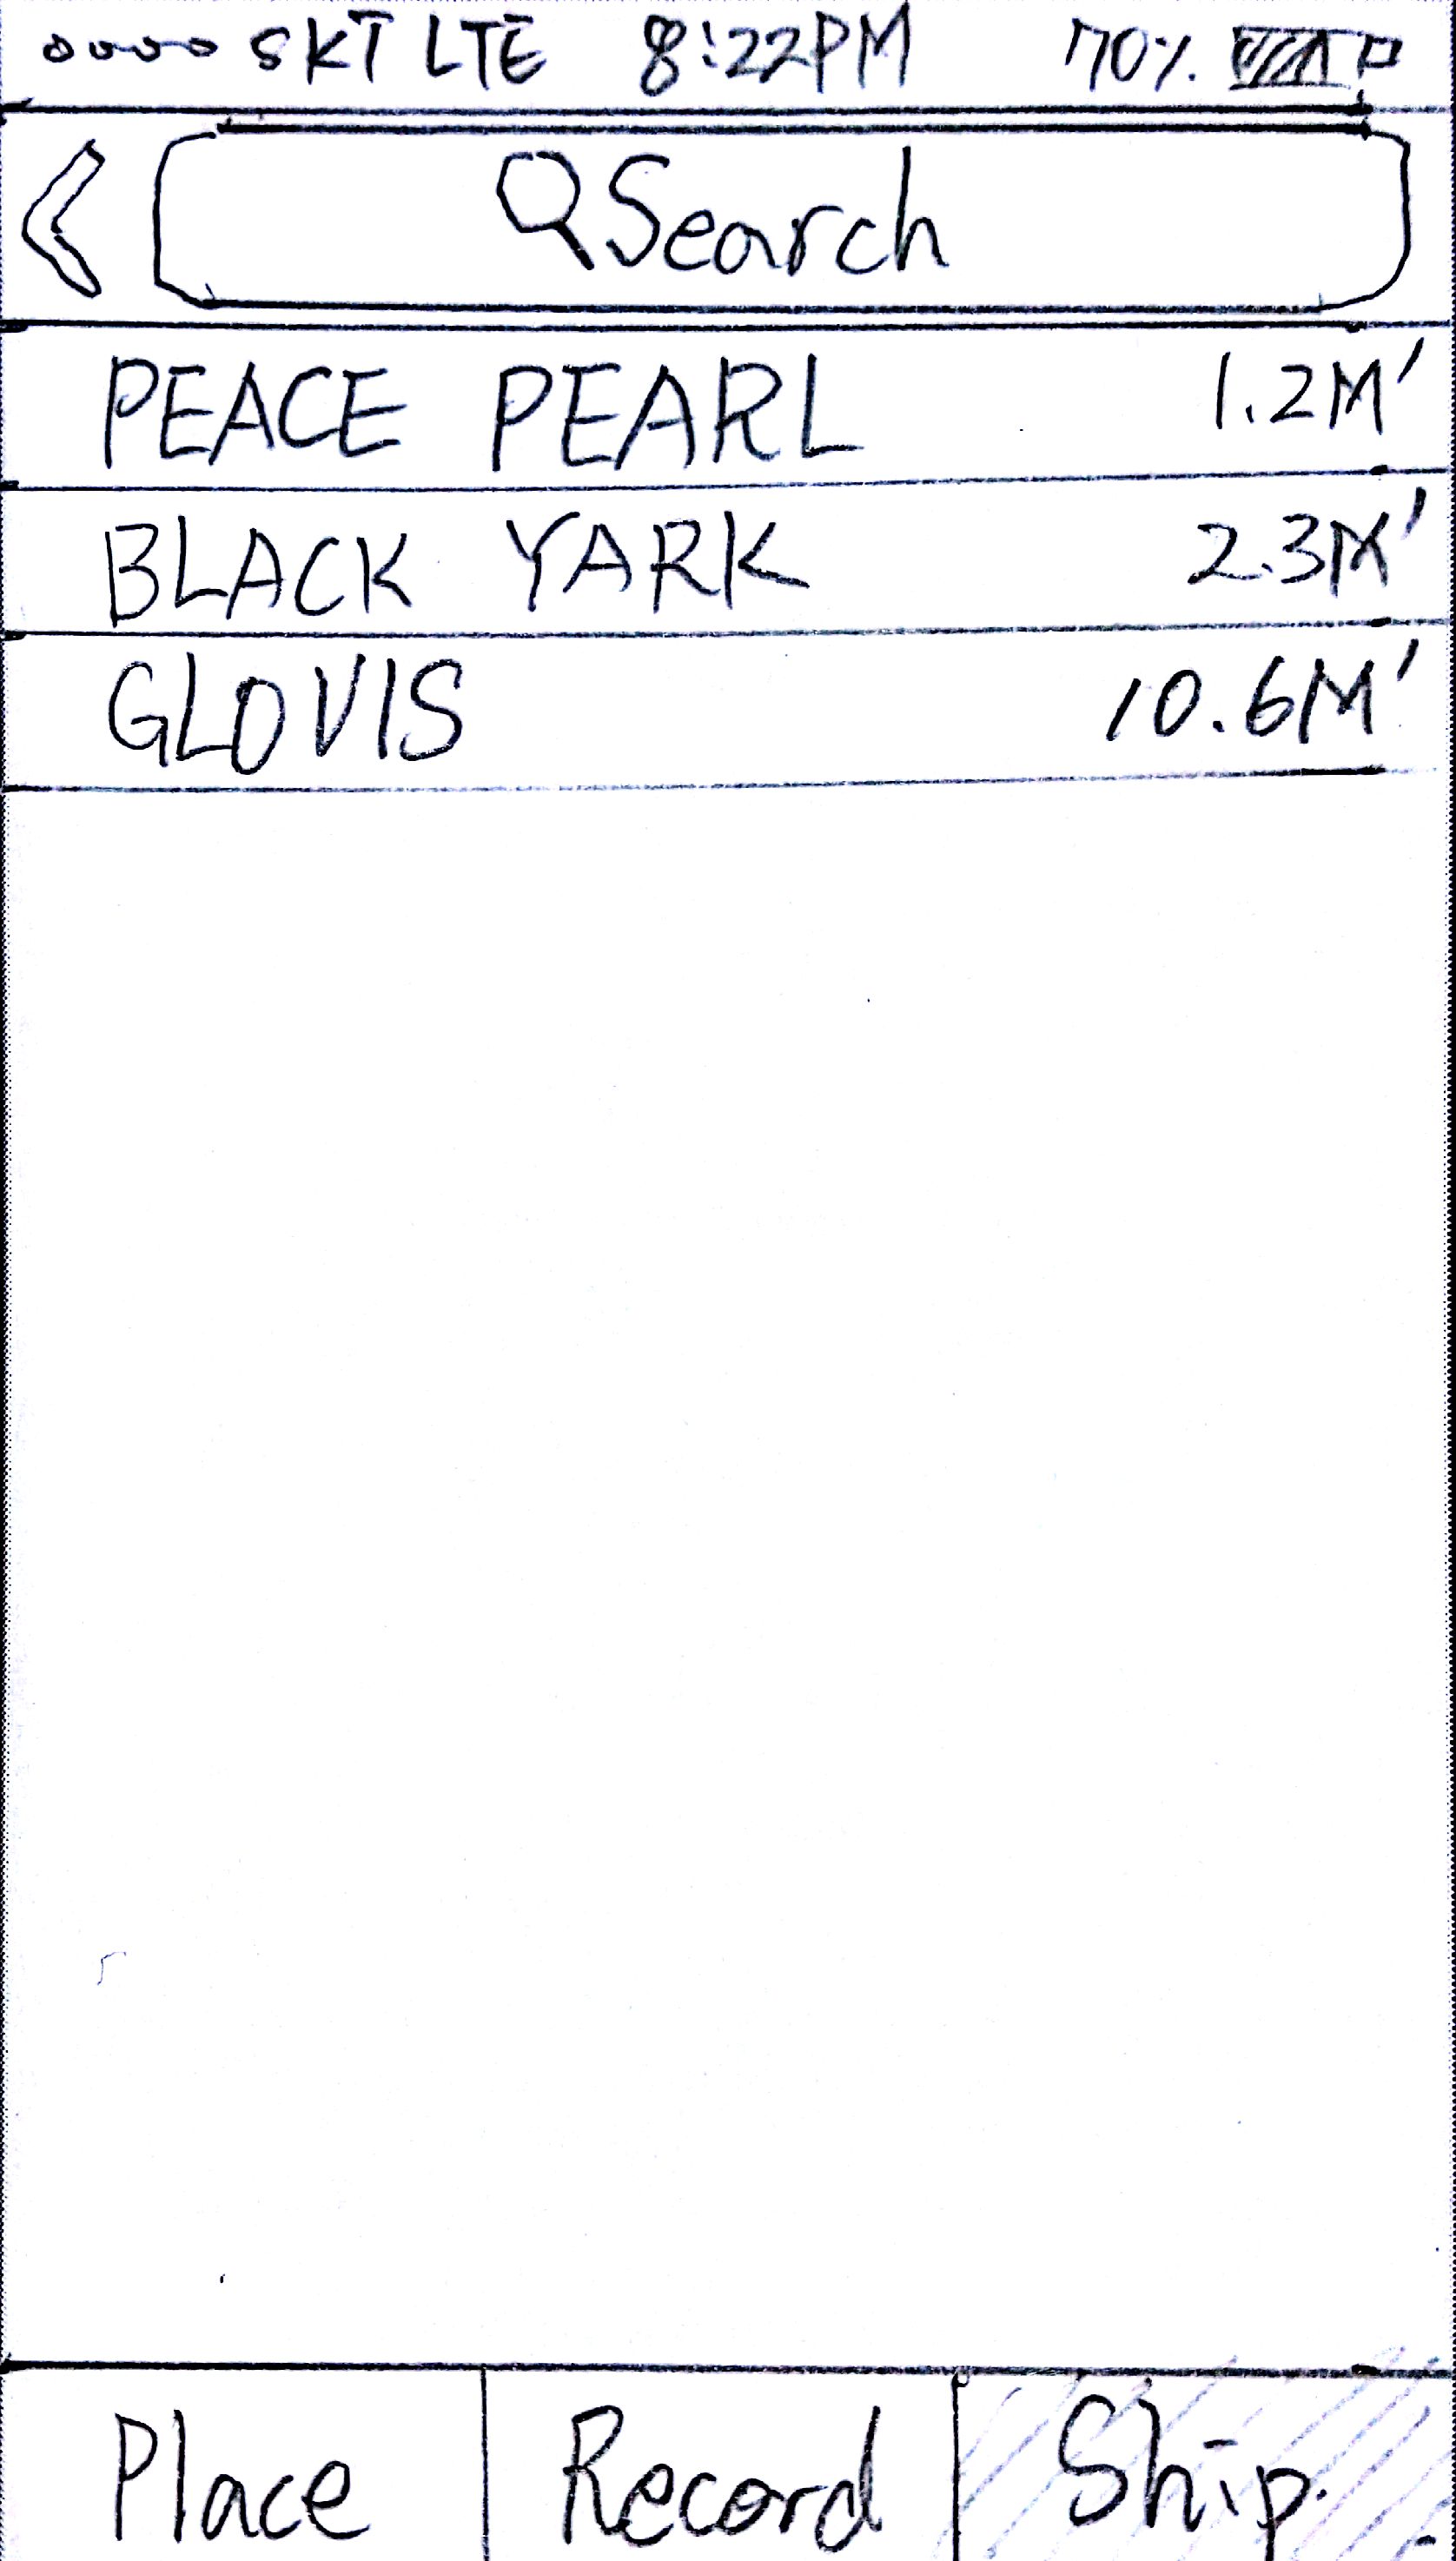 SKT LTE 8:22PM 70%
Search
PEACE PEARL 1.2M'
BLACK YARK 2.3M'
GLOVIS 10.6M'
Place Record Ship.